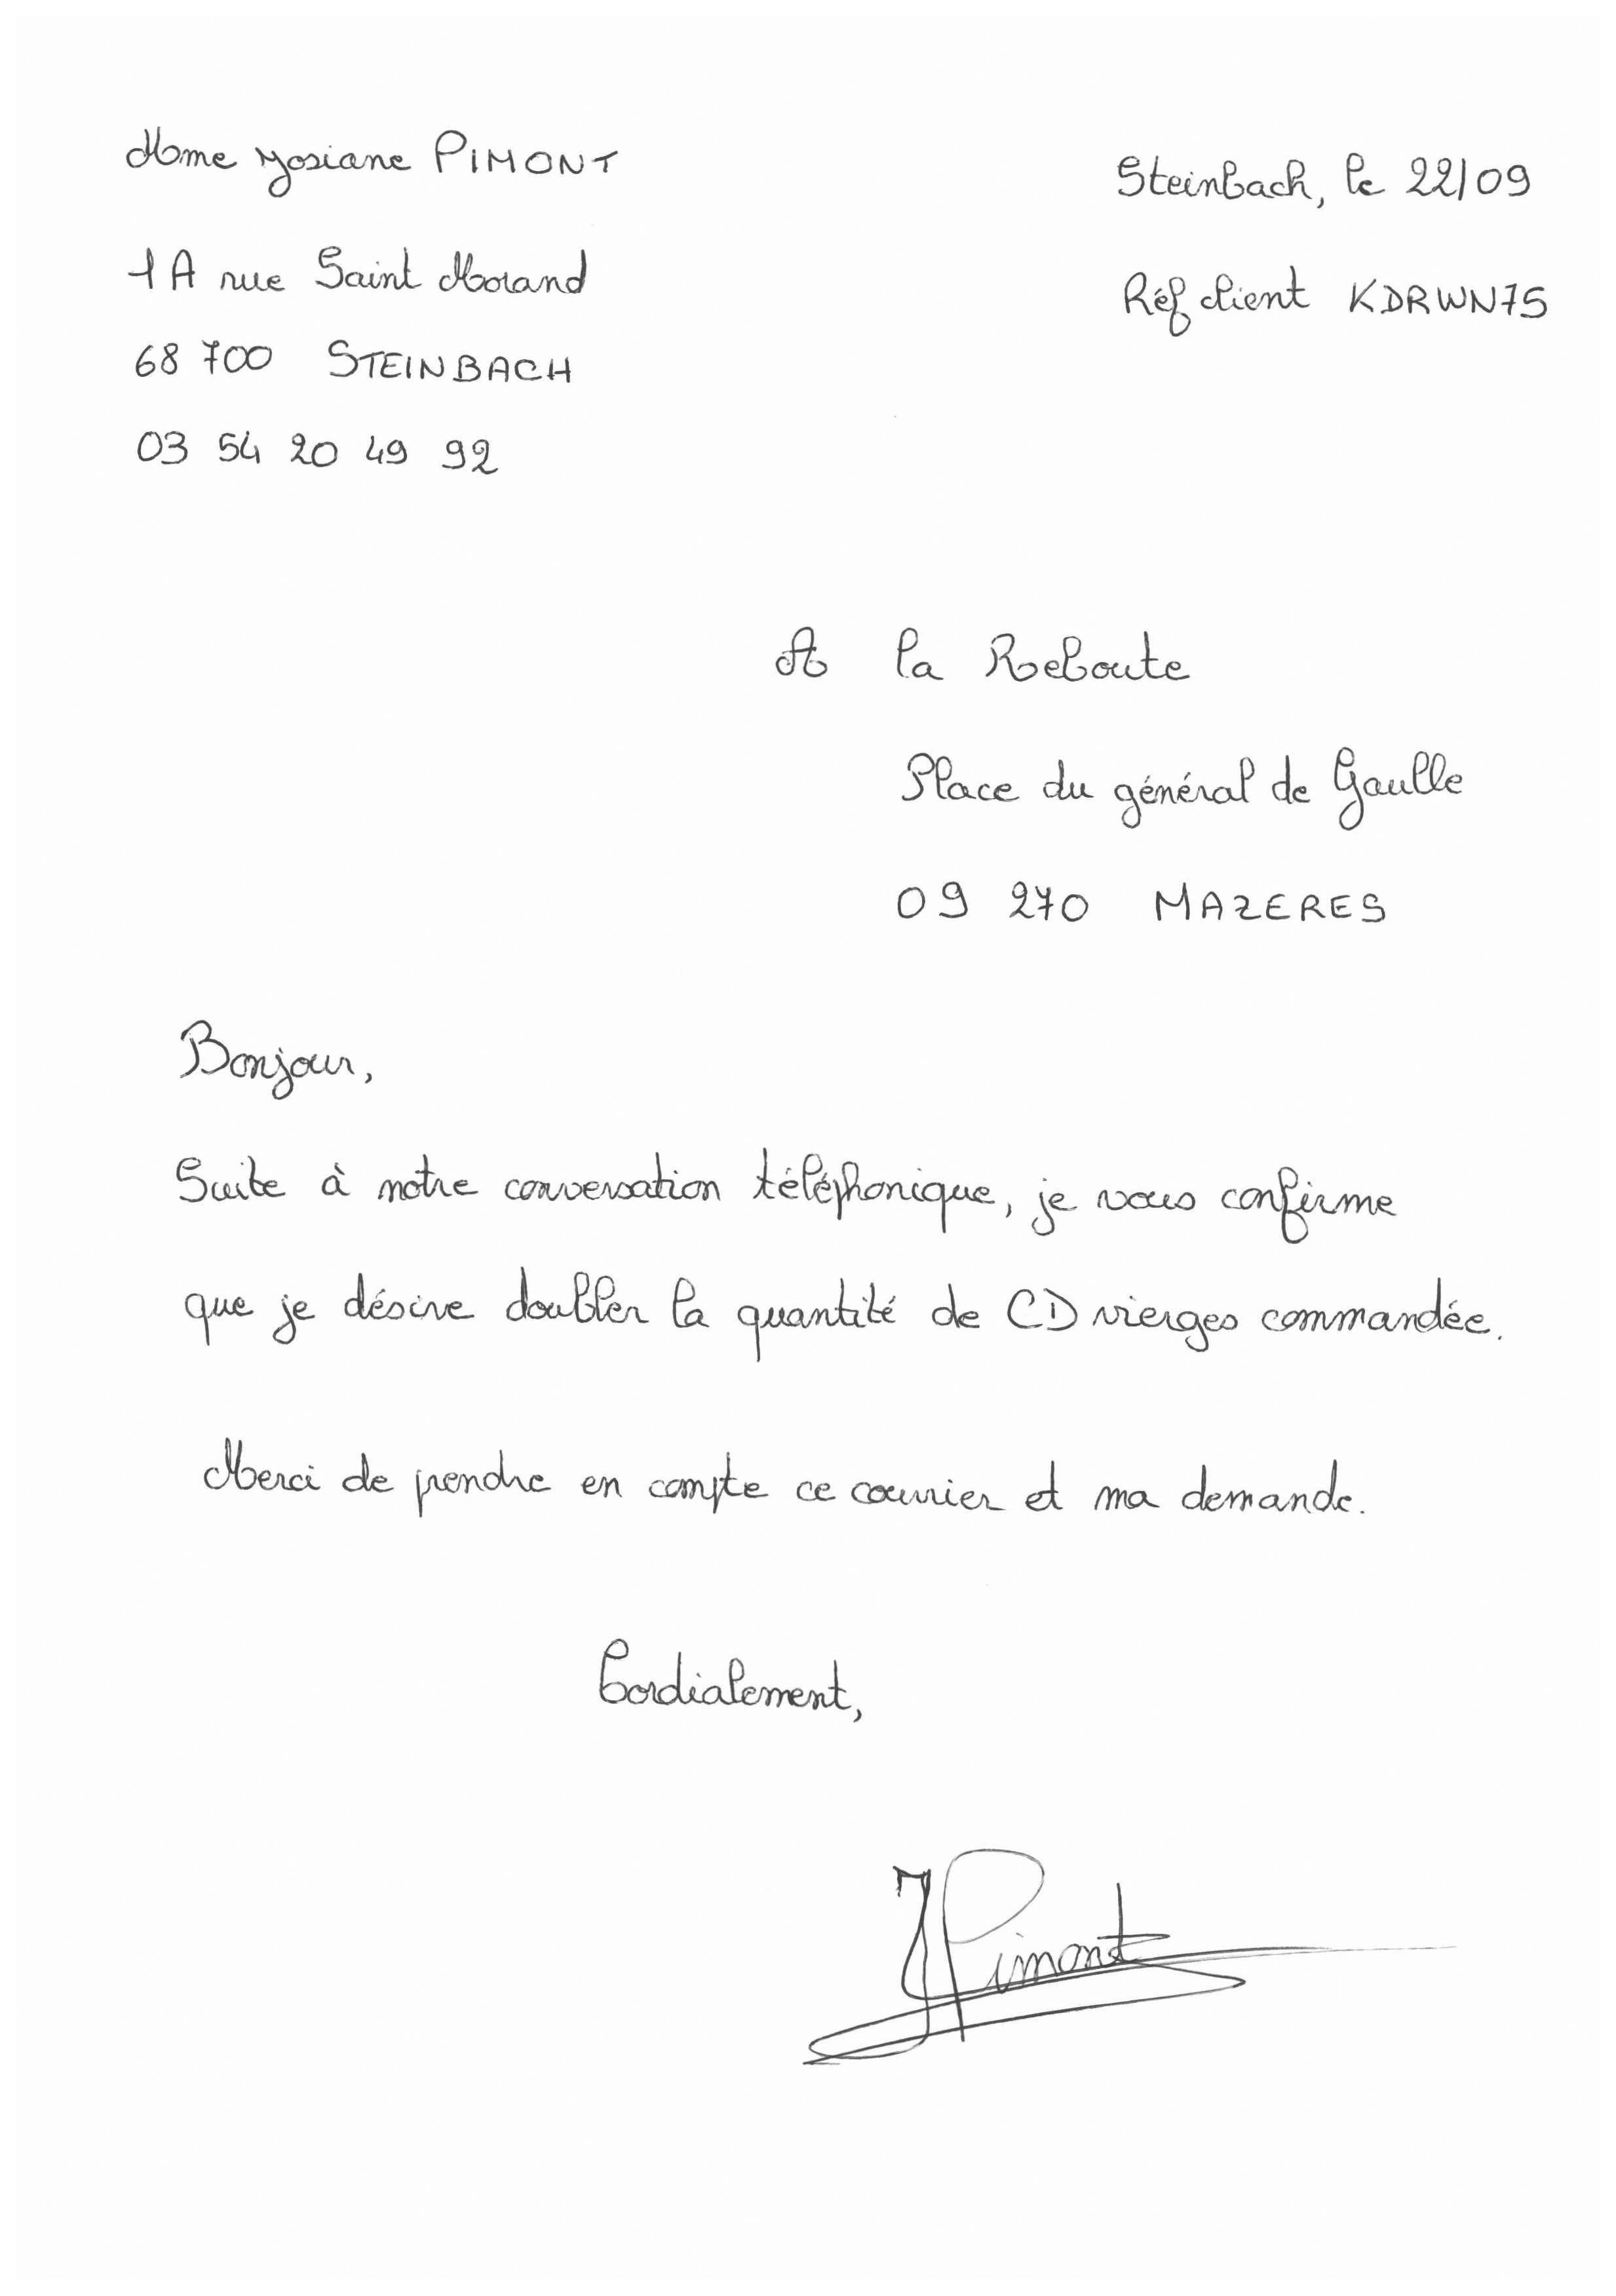 Mme Josiane PIMONT
Steinbach, le 22/09
1A rue Saint Morand
Réf client KDRWN75
68 700 STEINBACH
03 54 20 49 92
A la Reboute
Place du général de Gaulle
09 270 MAZERES
Bonjour,
Suite à notre conversation téléphonique, je vous confirme
que je désire doubler la quantité de CD vierges commandée.
Merci de prendre en compte ce courrier et ma demande.
Cordialement,
JPimont